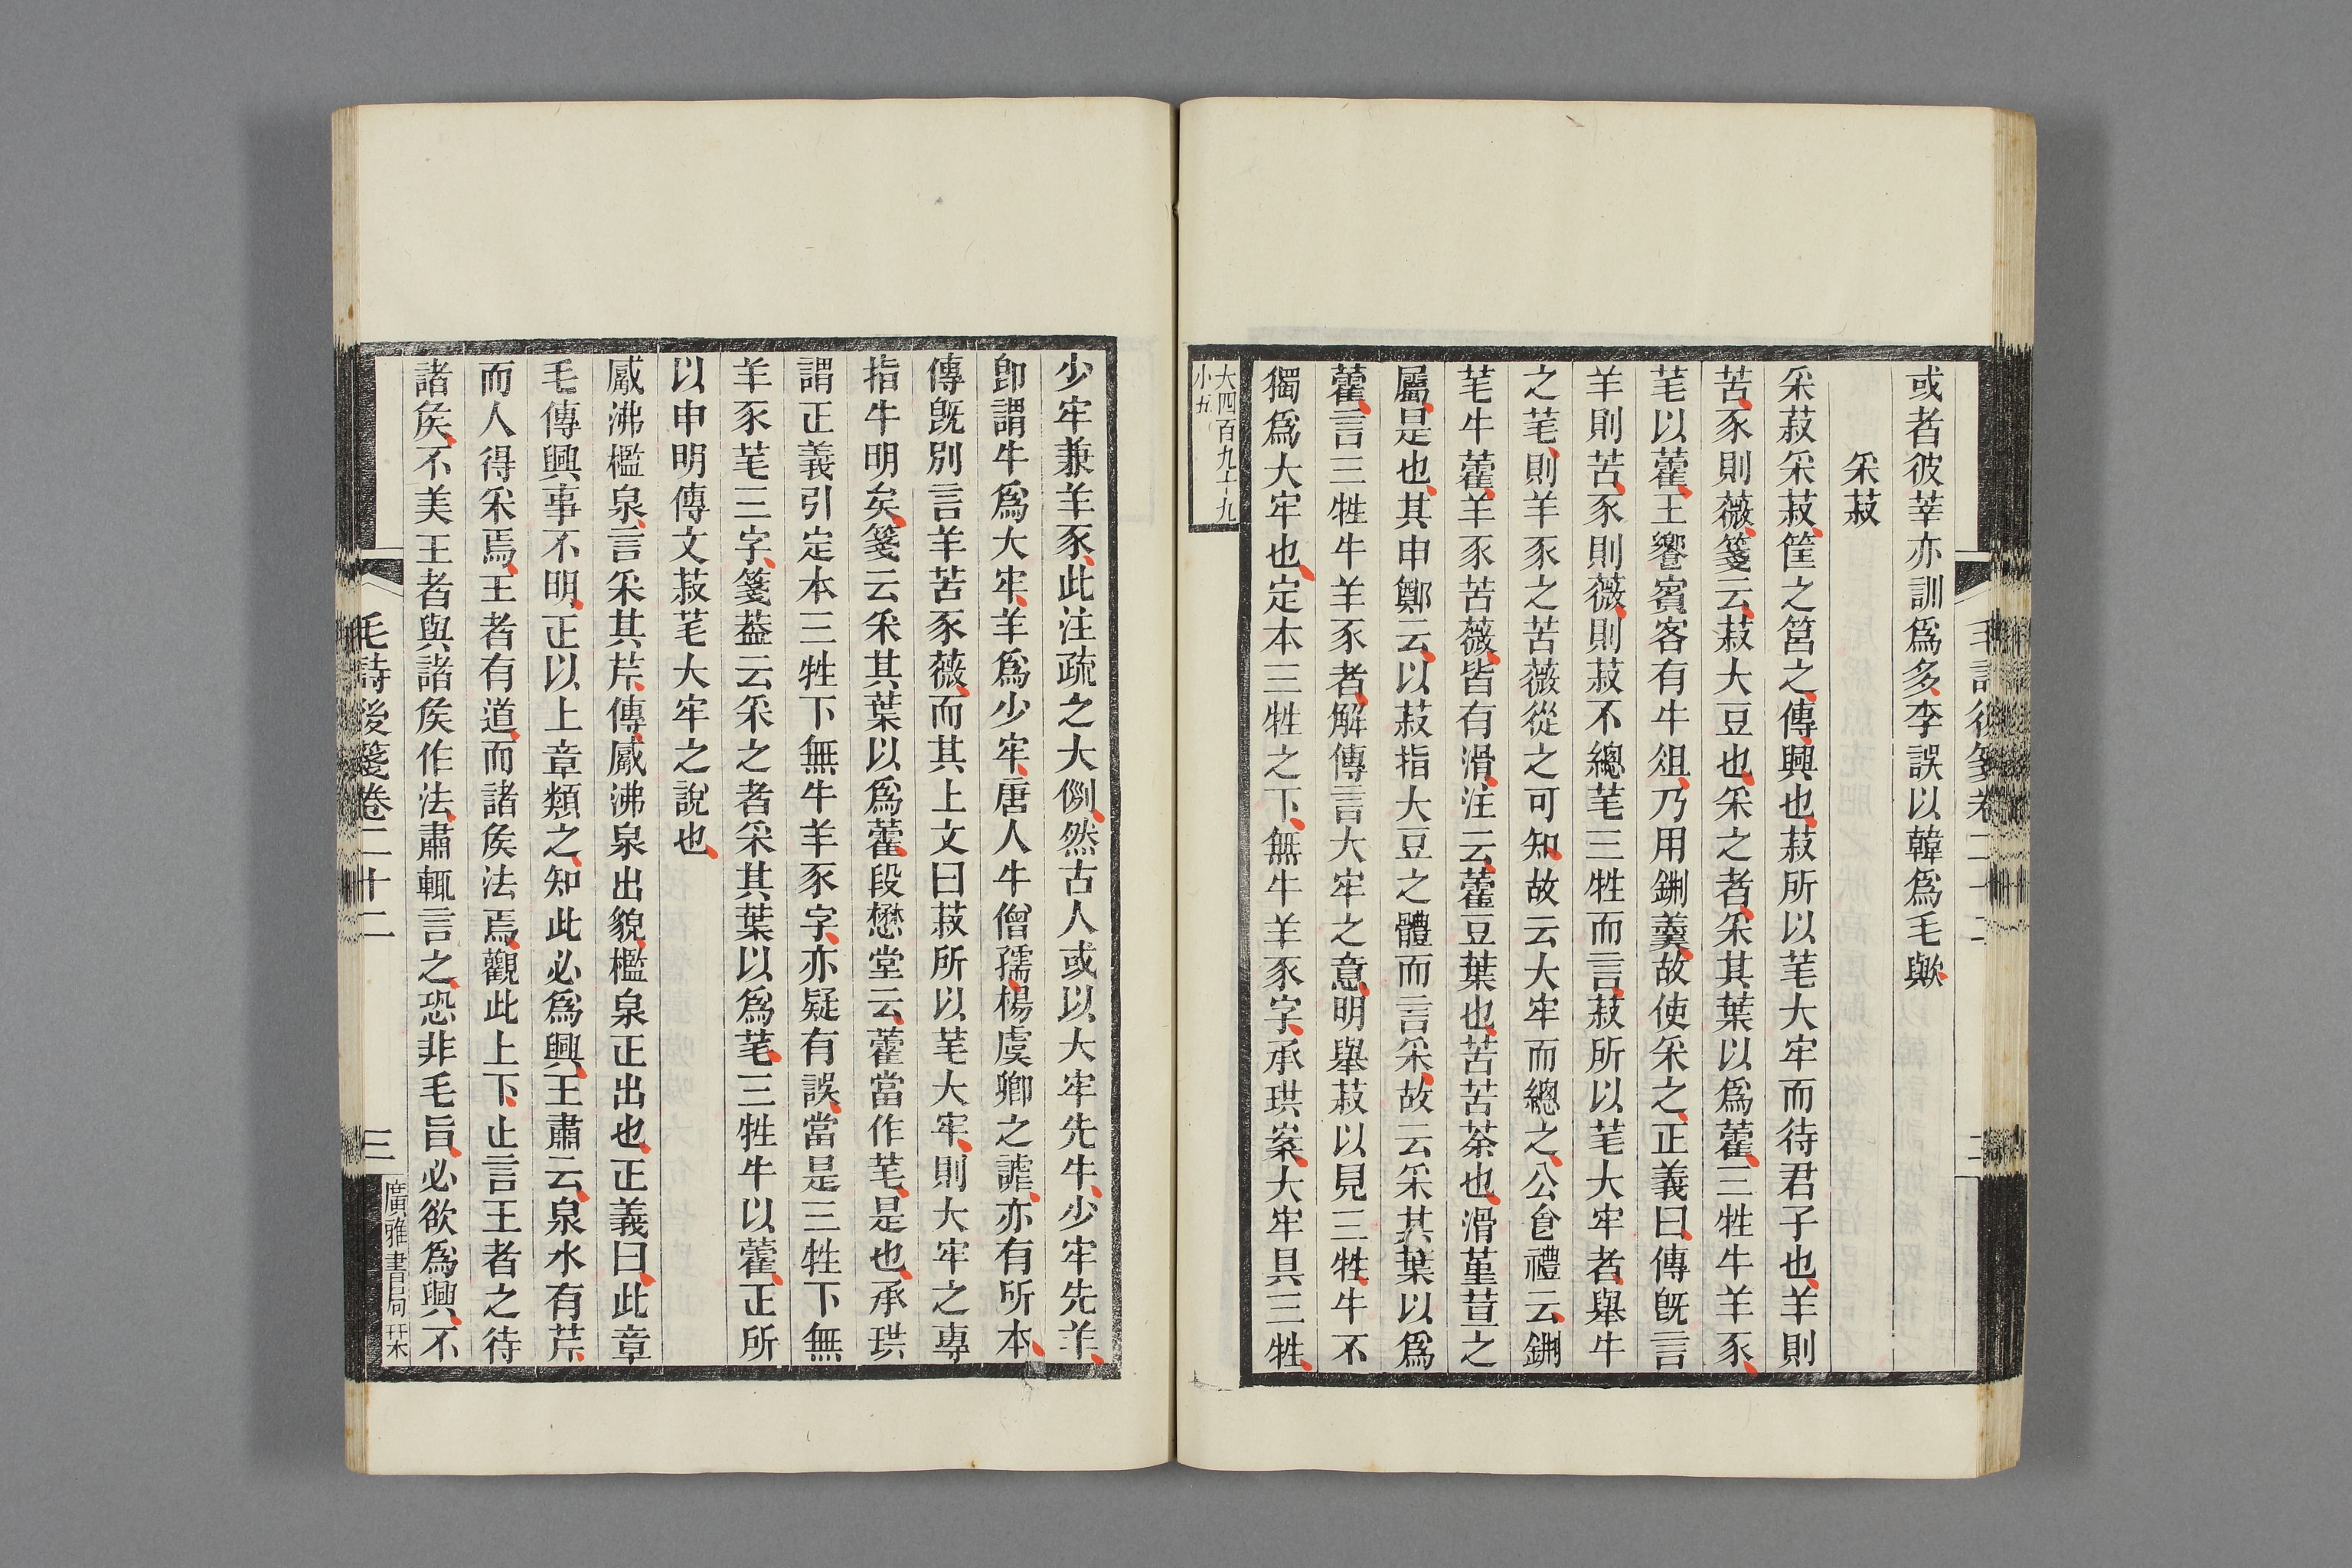 或者彼莘亦訓爲多李誤以韓爲毛歟
采菽
采菽采菽筐之筥之傳興也菽所以芼大牢而待君子也羊則
苦豕則薇箋云菽大豆也采之者采其葉以爲藿三牲牛羊豕
芼以藿王饗賓客有牛俎乃用鉶羹故使采之正義曰傳旣言
羊則苦豕則薇則菽不總芼三牲而言菽所以芼大牢者舉牛
之芼則羊豕之苦薇從之可知故云大牢而總之公食禮云鉶
芼牛藿羊豕苦薇皆有滑注云藿豆葉也苦苦荼也滑菫荁之
屬是也其申鄭云以菽指大豆之體而言采故云采其葉以爲
藿言三牲牛羊豕者解傳言大牢之意明舉菽以見三牲牛不
獨爲大牢也定本三牲之下無牛羊豕字承珙案大牢具三牲
大四百九十九
小五
少牢兼羊豕此注疏之大例然古人或以大牢先牛少牢先羊
卽謂牛爲大牢羊爲少牢唐人牛僧孺楊虞卿之謔亦有所本
傳旣別言羊苦豕薇而其上文曰菽所以芼大牢則大牢之專
指牛明矣箋云采其葉以爲藿段懋堂云藿當作芼是也承珙
謂正義引定本三牲下無牛羊豕字亦疑有誤當是三牲下無
羊豕芼三字箋葢云采之者采其葉以爲芼三牲牛以藿正所
以申明傳文菽芼大牢之說也
觱沸檻泉言采其芹傳觱沸泉出貌檻泉正出也正義曰此章
毛傳興事不明正以上章類之知此必爲興王肅云泉水有芹
而人得采焉王者有道而諸侯法焉觀此上下止言王者之待
諸侯不美王者與諸侯作法肅輒言之恐非毛旨必欲爲興不
毛詩後箋卷二十二
三
廣雅書局栞